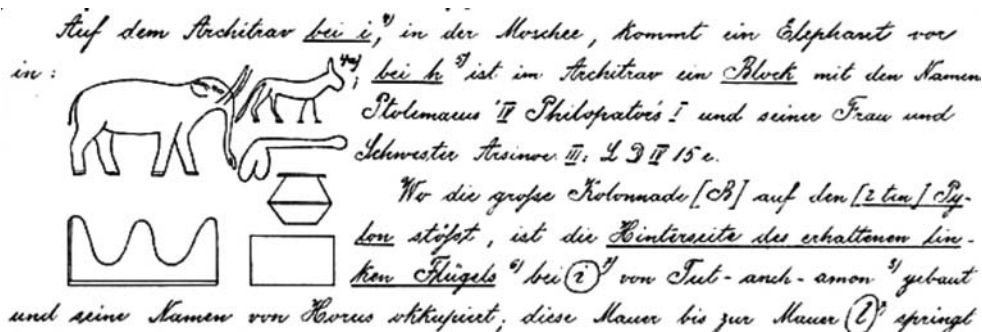 Auf dem Architrav bei i,⁴⁾ in der Moschee, kommt ein Elephant vor
in: ⁴ᵃ⁾; bei h⁵⁾ ist im Architrav ein Block mit den Namen
Ptolemaeus' IV Philopators I und seiner Frau und
Schwester Arsinoe III: L D IV 15 c.
Wo die große Kolonnade [B] auf den [2 ten] Py-
lon stößt, ist die Hinterseite des erhaltenen lin-
ken Flügels⁶⁾ bei (i)⁷⁾ von Tut-anch-amon⁸⁾ gebaut
und seine Namen von Horus okkupiert; diese Mauer bis zur Mauer (l)⁹⁾ springt